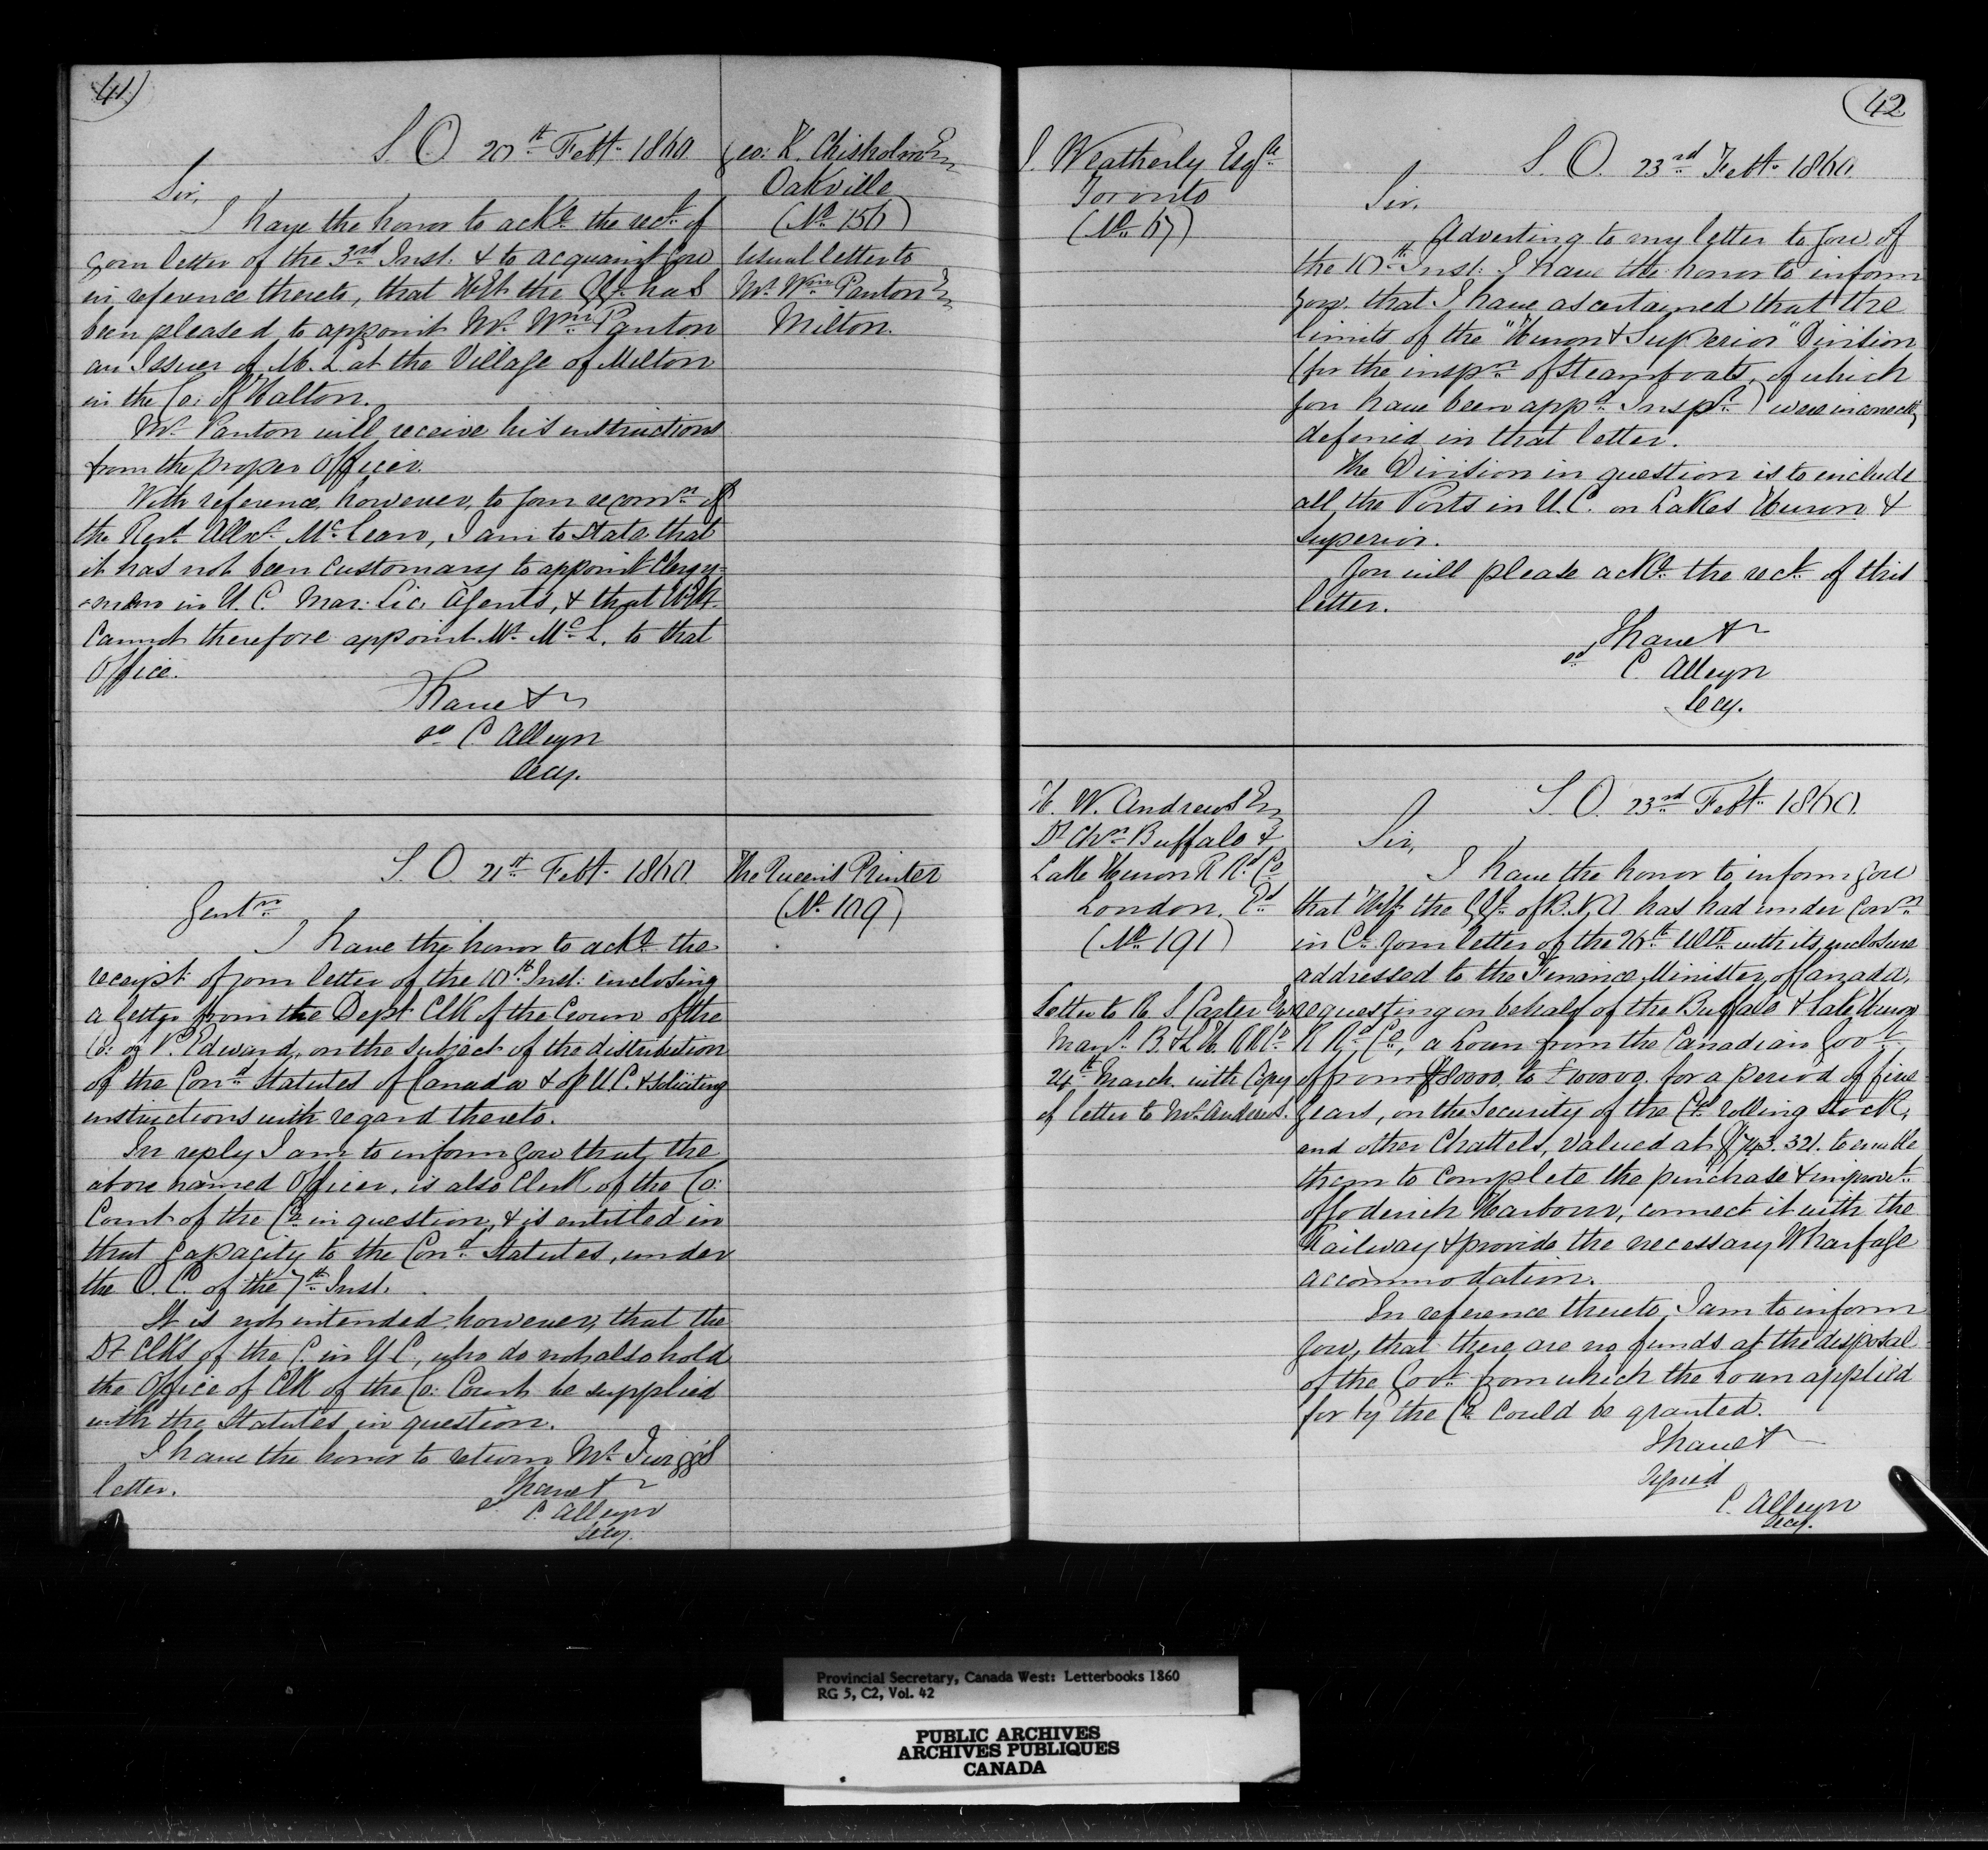 41)
S. O. 20th Feby. 1860.
Geo: K. Chisholm Esq
Oakville
(No. 156)
Usual letter to
Mr. Wm. Panton Esq
Milton.
Sir,
I have the honor to acke. the rect. of
your letter of the 3rd Inst. & to acquaint you
in reference thereto, that H.E. the G.G. has
been pleased to appoint Mr. Wm. Panton
an Issuer of M. L. at the Village of Milton
in the Co: of Halton.
Mr. Panton will receive his instructions
from the proper Officer.
With reference, however, to your recomn. of
the Revd. Allexr. McLean, I am to state that
it has not been customary to appoint Clergy=
=men in U. C. Mar: Lic: Agents, & that H.E.
cannot therefore appoint Mr. McL. to that
Office.
I have &
sd C. Alleyn
Secy.
S. O. 21st Feby. 1860.
The Queen's Printer
(No. 109)
Gentn.
I have the honor to acke. the
receipt of your letter of the 10th Inst: enclosing
a letter from the Dept Clk of the Crown of the
Co: of P. Edward, on the subject of the distribution
of the Cond. Statutes of Canada & of U.C. & soliciting
instructions with regard thereto.
In reply I am to inform you that the
above named Officer, is also Clerk of the Co:
Court of the Co. in question, & is entitled in
that capacity to the Cond. Statutes, under
the O. C. of the 7th Inst.
It is not intended however, that the
Dt Clks of the C. in U C, who do not also hold
the Office of Clk of the Co: Court be supplied
with the Statutes in question.
I have the honor to return Mr. Twigg's
letter.
I have &
sd C. Alleyn
Secy.
42
J. Weatherly Esqre
Toronto
(No. 67)
S. O. 23rd Feby. 1860.
Sir,
Adverting to my letter to you of
the 10th Inst: I have the honor to inform
you that I have ascertained that the
limits of the "Huron & Superior" Division
(for the inspn. of Steamboats, of which
you have been appd. Inspr.) were incorrectly
defined in that letter.
The Division in question is to include
all the Ports in U.C. on Lakes Huron &
Superior.
You will please acke. the rect. of this
letter.
I have &
sd C. Alleyn
Secy.
H. W. Andrews Esq
Dt Chn. Buffalo &
Lake Huron R Rd. Co
London, Ed
(No. 191)
Letter to R. S. Carter Esq
Mang. B. & L. H. RRd.
24th March with Copy
of letter to Mr. Andrews.
S. O. 23rd Feby. 1860.
Sir,
I have the honor to inform you
that H.E. the G.G. of B. N. A. has had under Conn.
in Cl. your letter of the 26th Ulto. with its enclosure
addressed to the Finance Minister of Canada,
requesting on behalf of the Buffalo & Lake Huron
R Rd. Co., a Loan from the Canadian Govt.
of from £80000. to £100000. for a period of five
years, on the Security of the Cos. rolling stock,
and other Chattels, valued at £743.321. to enable
them to complete the purchase & improvt.
of Goderich Harbour, connect it with the
Railway & provide the necessary Wharfage
accommodation.
In reference thereto, I am to inform
you, that there are no funds at the disposal
of the Govt. from which the Loan applied
for by the Co. could be granted.
I have &
signed
C. Alleyn
Secy.
Provincial Secretary, Canada West: Letterbooks 1860
RG 5, C2, Vol. 42
PUBLIC ARCHIVES
ARCHIVES PUBLIQUES
CANADA